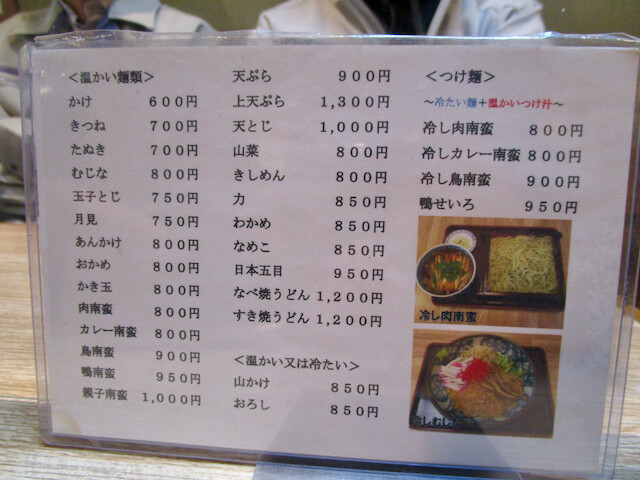 ＜温かい麺類＞
かけ 600円
きつね 700円
たぬき 700円
むじな 800円
玉子とじ 750円
月見 750円
あんかけ 800円
おかめ 800円
かき玉 800円
肉南蛮 800円
カレー南蛮 800円
鳥南蛮 900円
鴨南蛮 950円
親子南蛮 1,000円
天ぷら 900円
上天ぷら 1,300円
天とじ 1,000円
山菜 800円
きしめん 800円
力 850円
わかめ 850円
なめこ 850円
日本五目 950円
なべ焼うどん 1,200円
すき焼うどん 1,200円
＜温かい又は冷たい＞
山かけ 850円
おろし 850円
＜つけ麺＞
～冷たい麺＋温かいつけ汁～
冷し肉南蛮 800円
冷しカレー南蛮 800円
冷し鳥南蛮 900円
鴨せいろ 950円
冷し肉南蛮
冷しむじな